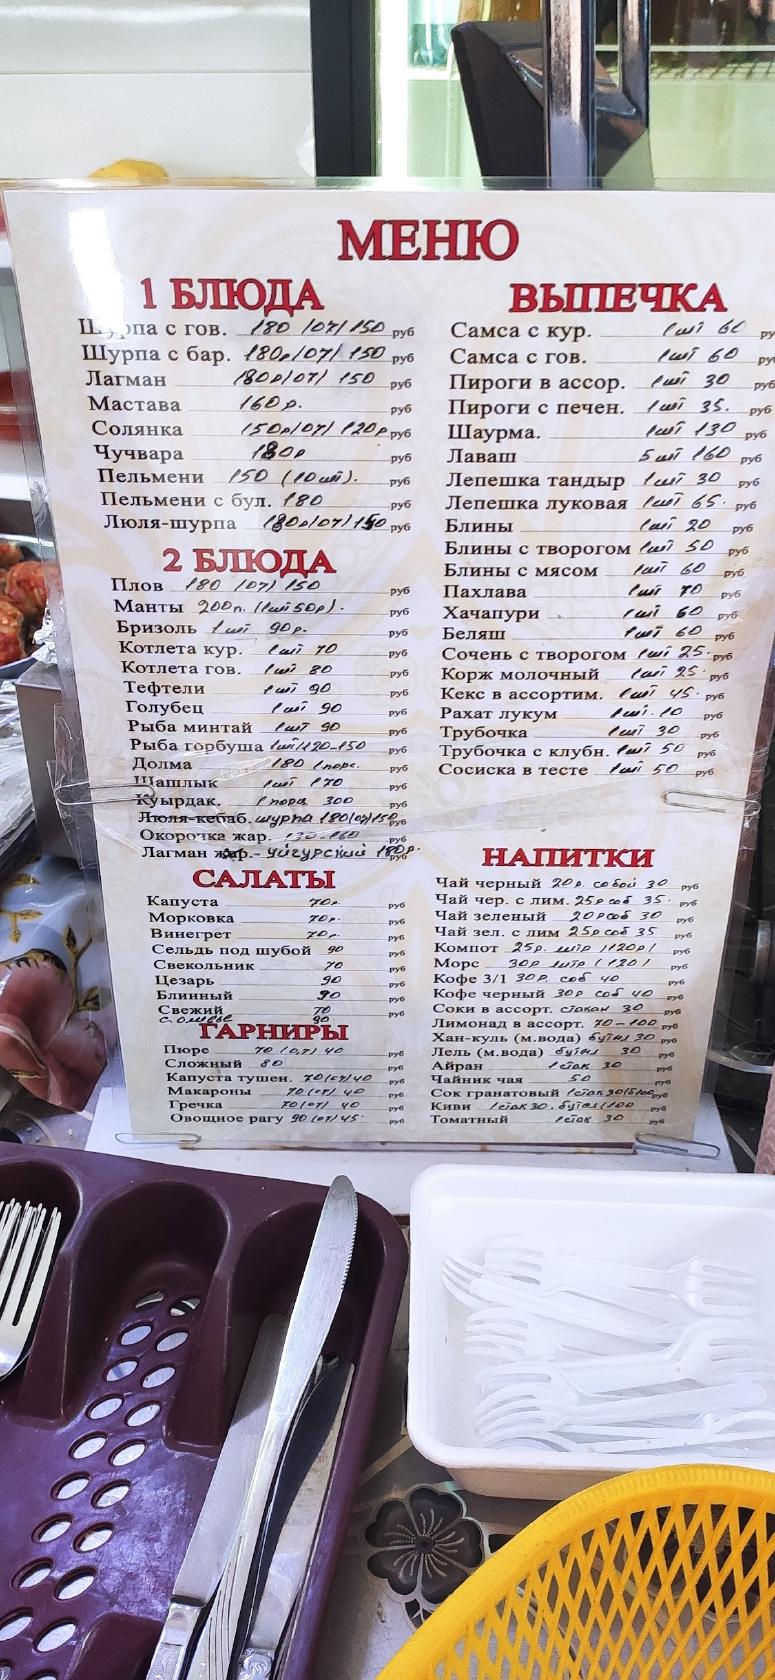 МЕНЮ
1 БЛЮДА
Шурпа с гов. 180 /07/ 150 руб
Шурпа с бар. 180р/07/ 150 руб
Лагман 180р/07/ 150 руб
Мастава 160р. руб
Солянка 150р/07/ 120р руб
Чучвара 180р руб
Пельмени 150 (10шт). руб
Пельмени с бул. 180 руб
Люля-шурпа 180р/07/150 руб
2 БЛЮДА
Плов 180 /07/ 150 руб
Манты 200п. (1шт50р). руб
Бризоль 1шт 90р. руб
Котлета кур. 1шт 70 руб
Котлета гов. 1шт 80 руб
Тефтели 1шт 90 руб
Голубец 1шт 90 руб
Рыба минтай 1шт 90 руб
Рыба горбуша 1шт/120-150 руб
Долма 180 1порс. руб
Шашлык 1шт 170 руб
Куырдак. 1порц 300 руб
Люля-кебаб. шурпа 180/07/150 руб
Окорочка жар. 130-160 руб
Лагман жар.- уйгурский 180р. руб
САЛАТЫ
Капуста 70р. руб
Морковка 70р. руб
Винегрет 70р. руб
Сельдь под шубой 90 руб
Свекольник 70 руб
Цезарь 90 руб
Блинный 90 руб
Свежий 70 руб
С. оливье 90
ГАРНИРЫ
Пюре 70 /0,7/ 40 руб
Сложный 80 руб
Капуста тушен. 70/07/40 руб
Макароны 70/07/ 40 руб
Гречка 70/07/ 40 руб
Овощное рагу 90/07/45 руб
ВЫПЕЧКА
Самса с кур. 1шт 60 ру
Самса с гов. 1шт 60 руб
Пироги в ассор. 1шт 30 руб
Пироги с печен. 1шт 35. руб
Шаурма. 1шт 130 руб
Лаваш 5шт 160 руб
Лепешка тандыр 1шт 30 руб
Лепешка луковая 1шт 65. руб
Блины 1шт 20 руб
Блины с творогом 1шт 50 руб
Блины с мясом 1шт 60 руб
Пахлава 1шт 70 руб
Хачапури 1шт 60 руб
Беляш 1шт 60 руб
Сочень с творогом 1шт 25. руб
Корж молочный 1шт 25. руб
Кекс в ассортим. 1шт 45. руб
Рахат лукум 1шт.10 руб
Трубочка 1шт 30 руб
Трубочка с клубн. 1шт 50 руб
Сосиска в тесте 1шт 50 руб
НАПИТКИ
Чай черный 20р. собой 30 руб
Чай чер. с лим. 25р соб 35. руб
Чай зеленый 20р соб 30 руб
Чай зел. с лим 25р соб 35 руб
Компот 25р. литр /120р/ руб
Морс 30р литр /120/ руб
Кофе 3/1 30р. соб 40 руб
Кофе черный 30р соб 40 руб
Соки в ассорт. стакан 30 руб
Лимонад в ассорт. 70-100 руб
Хан-куль (м.вода) бутыл 30 руб
Лель (м.вода) бутыл 30 руб
Айран 1стак 30 руб
Чайник чая 50 руб
Сок гранатовый 1стак30/б100 руб
Киви 1стак30. бутыл/100 руб
Томатный 1стак 30 руб